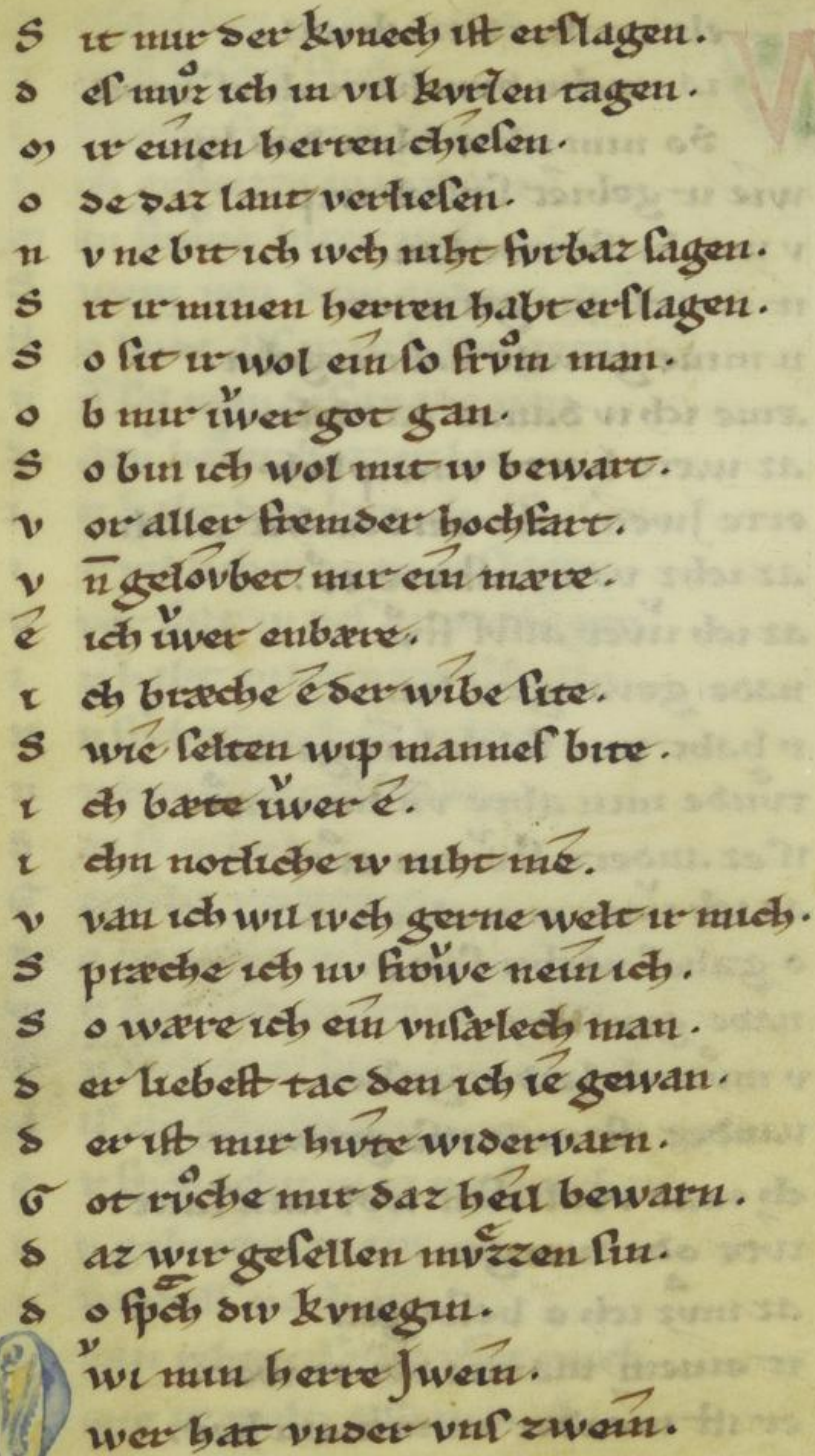 S it mir der kvnech ist erslagen.
d es mvͦz ich in vil kvrzen tagen.
m ir einen herren chiesen.
o de daz lant verliesen.
n v ne bit ich iwch niht fvrbaz sagen.
S it ir minen herren habt erslagen.
S o sit ir wol ein so frvͦm man.
o b mir iͮwer got gan.
S o bin ich wol mit iv bewart.
v or aller fremder hochfart.
v n̄ gelôvbet mir ein mære.
ê ich iͮwer enbære.
i ch bræche ê der wîbe site.
S wiê selten wip mannes bite.
i ch bæte iͮwer ê.
i chn notliche iv niht mê.
v van ich wil iwch gerne welt ir mich.
S præche ich nv froͮwe nein ich.
S o wære ich ein vnsælech man.
d er liebest tac den ich iê gewan.
d er ist mir hiwte widervarn.
G ot rvͦche mir daz heil bewarn.
d az wir gesellen mvͤzzen sin.
d o spᵃch div kvnegin.
vͮwi min herre Jwein.
wer hat vnder vns zwein.